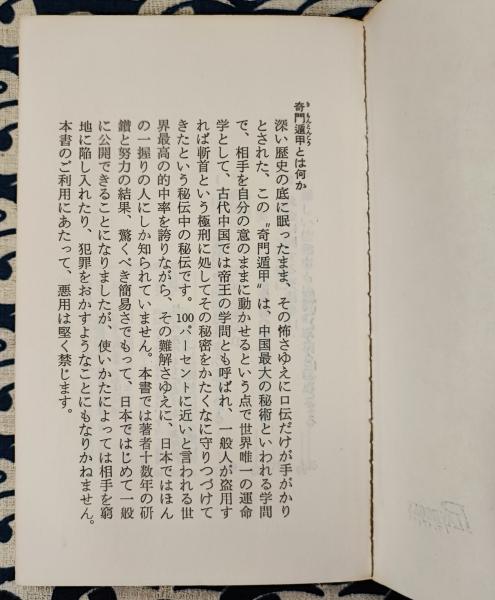 奇門遁甲とは何か
深い歴史の底に眠ったまま、その怖さゆえに口伝だけが手がかり
とされた、この〝奇門遁甲〟は、中国最大の秘術といわれる学問
で、相手を自分の意のままに動かせるという点で世界唯一の運命
学として、古代中国では帝王の学問とも呼ばれ、一般人が盗用す
れば斬首という極刑に処してその秘密をかたくなに守りつづけて
きたという秘伝中の秘伝です。100パーセントに近いと言われる世
界最高の的中率を誇りながら、その難解さゆえに、日本ではほん
の一握りの人にしか知られていません。本書では著者十数年の研
鑽と努力の結果、驚くべき簡易さでもって、日本ではじめて一般
に公開できることになりましたが、使いかたによっては相手を窮
地に陥し入れたり、犯罪をおかすようなことにもなりかねません。
本書のご利用にあたって、悪用は堅く禁じます。